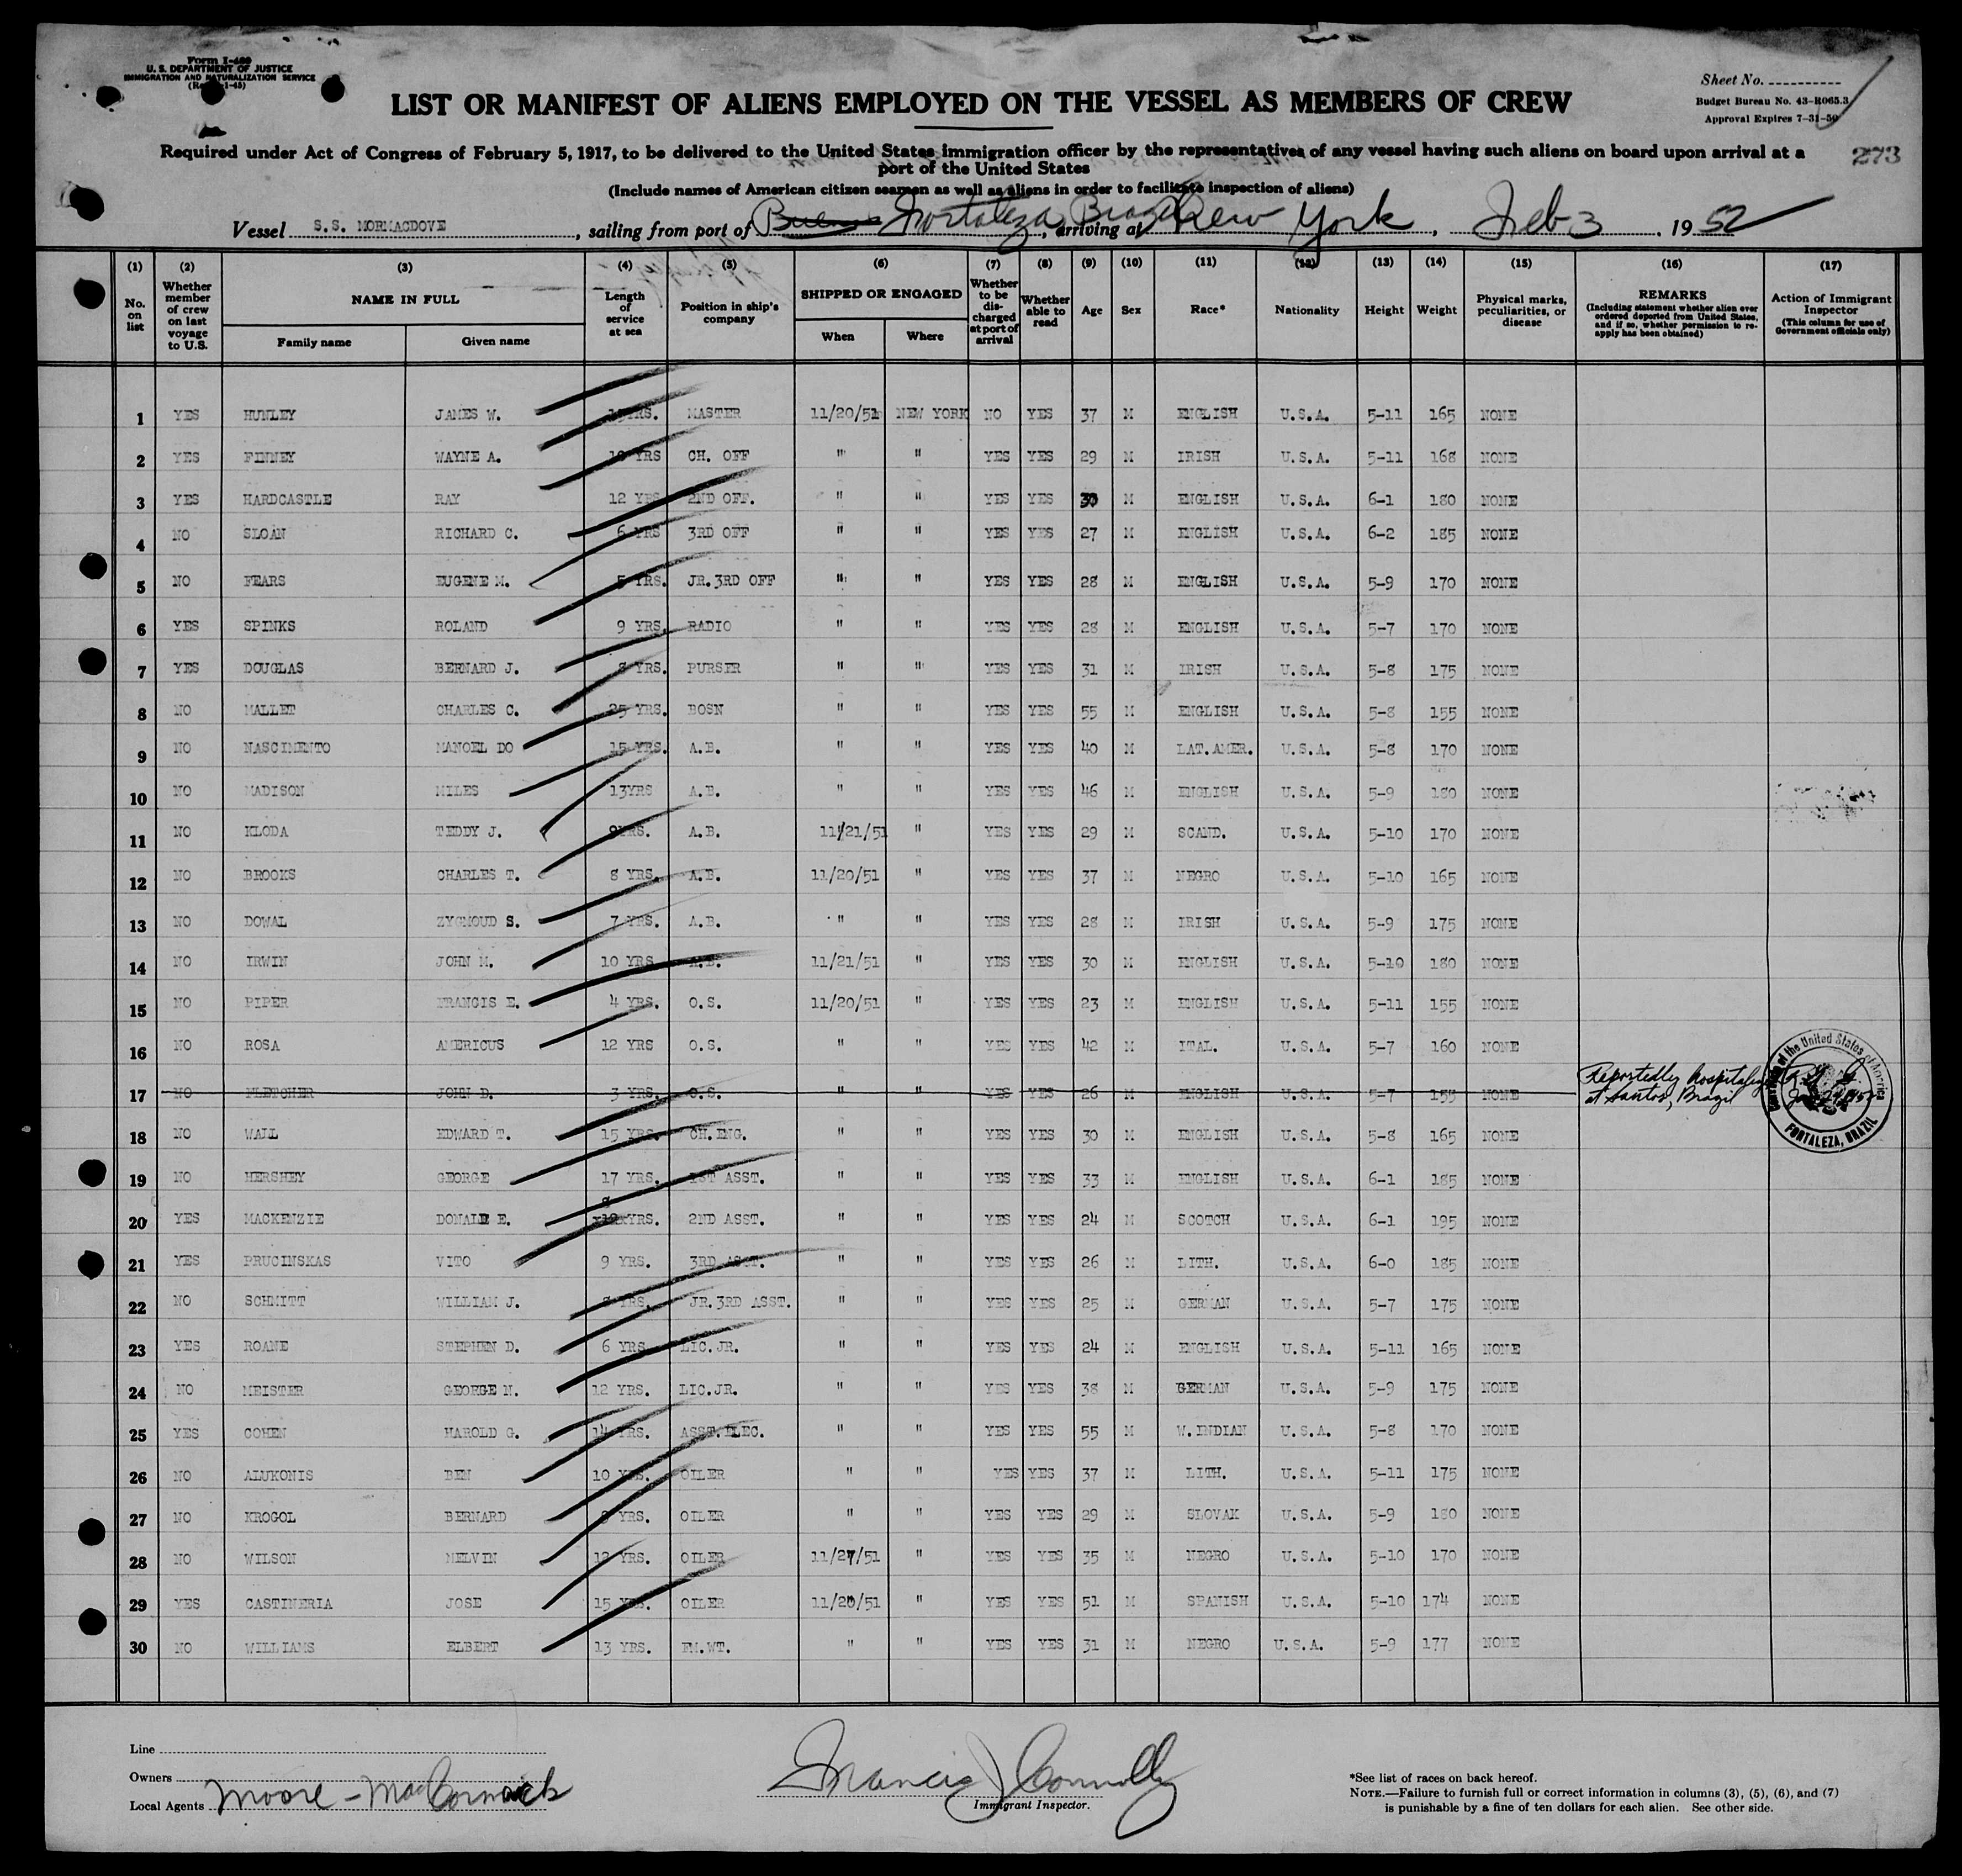 Form I-489
U. S. DEPARTMENT OF JUSTICE
IMMIGRATION AND NATURALIZATION SERVICE
Sheet No.
Budget Bureau No. 43-R065.3
Approval Expires 7-31-50
LIST OR MANIFEST OF ALIENS EMPLOYED ON THE VESSEL AS MEMBERS OF CREW
Required under Act of Congress of February 5, 1917, to be delivered to the United States immigration officer by the representatives of any vessel having such aliens on board upon arrival at a
port of the United States
273
(Include names of American citizen seamen as well as aliens in order to facilitate inspection of aliens)
Vessel S.S. MORMACDOVE, sailing from port of Fortaleza, Brazil, arriving at New York, Feb 3, 1952
(1) (2) (3) (4) (5) (6) (7) (8) (9) (10) (11) (12) (13) (14) (15) (16) (17)
No. on list Whether member of crew on last voyage to U.S. NAME IN FULL Family name Given name Length of service at sea Position in ship's company SHIPPED OR ENGAGED When Where Whether to be discharged at port of arrival Whether able to read Age Sex Race* Nationality Height Weight Physical marks, peculiarities, or disease REMARKS (Including statement whether alien ever ordered deported from United States, and if so, whether permission to re-apply has been obtained) Action of Immigrant Inspector (This column for use of Government officials only)
1 YES HUNLEY JAMES W. YRS. MASTER 11/20/51 NEW YORK NO YES 37 M ENGLISH U.S.A. 5-11 165 NONE
2 YES FINNEY WAYNE A. 10 YRS CH. OFF " " YES YES 29 M IRISH U.S.A. 5-11 168 NONE
3 YES HARDCASTLE RAY 12 YRS 2ND OFF. " " YES YES 30 M ENGLISH U.S.A. 6-1 180 NONE
4 NO SLOAN RICHARD C. 6 YRS 3RD OFF " " YES YES 27 M ENGLISH U.S.A. 6-2 185 NONE
5 NO FEARS EUGENE M. 5 YRS. JR.3RD OFF " " YES YES 28 M ENGLISH U.S.A. 5-9 170 NONE
6 YES SPINKS ROLAND 9 YRS. RADIO " " YES YES 28 M ENGLISH U.S.A. 5-7 170 NONE
7 YES DOUGLAS BERNARD J. 8 YRS. PURSER " " YES YES 31 M IRISH U.S.A. 5-8 175 NONE
8 NO MALLET CHARLES C. 25 YRS. BOSN " " YES YES 55 M ENGLISH U.S.A. 5-8 155 NONE
9 NO NASCIMENTO MANOEL DO 15 YRS. A.B. " " YES YES 40 M LAT.AMER. U.S.A. 5-8 170 NONE
10 NO MADISON MILES 13YRS A.B. " " YES YES 46 M ENGLISH U.S.A. 5-9 180 NONE
11 NO KLODA TEDDY J. 9YRS. A.B. 11/21/51 " YES YES 29 M SCAND. U.S.A. 5-10 170 NONE
12 NO BROOKS CHARLES T. 8 YRS. A.B. 11/20/51 " YES YES 37 M NEGRO U.S.A. 5-10 165 NONE
13 NO DOWAL ZYGMOUD S. 7 YRS. A.B. " " YES YES 28 M IRISH U.S.A. 5-9 175 NONE
14 NO IRWIN JOHN M. 10 YRS A.B. 11/21/51 " YES YES 30 M ENGLISH U.S.A. 5-10 180 NONE
15 NO PIPER FRANCIS E. 4 YRS. O.S. 11/20/51 " YES YES 23 M ENGLISH U.S.A. 5-11 155 NONE
16 NO ROSA AMERICUS 12 YRS O.S. " " YES YES 42 M ITAL. U.S.A. 5-7 160 NONE
17 NO FLETCHER JOHN D. 3 YRS. O.S. " " YES YES 26 M ENGLISH U.S.A. 5-7 155 NONE Reportedly hospitalized at Santos, Brazil
of the United States of America
FORTALEZA, BRAZIL
18 NO WALL EDWARD T. 15 YRS. CH.ENG. " " YES YES 30 M ENGLISH U.S.A. 5-8 165 NONE
19 NO HERSHEY GEORGE 17 YRS. 1ST ASST. " " YES YES 33 M ENGLISH U.S.A. 6-1 185 NONE
20 YES MACKENZIE DONALD E. 8 YRS. 2ND ASST. " " YES YES 24 M SCOTCH U.S.A. 6-1 195 NONE
21 YES PRUCINSKAS VITO 9 YRS. 3RD ASST. " " YES YES 26 M LITH. U.S.A. 6-0 185 NONE
22 NO SCHMITT WILLIAM J. YRS. JR.3RD ASST. " " YES YES 25 M GERMAN U.S.A. 5-7 175 NONE
23 YES ROANE STEPHEN D. 6 YRS LIC.JR. " " YES YES 24 M ENGLISH U.S.A. 5-11 165 NONE
24 NO MEISTER GEORGE N. 12 YRS. LIC.JR. " " YES YES 38 M GERMAN U.S.A. 5-9 175 NONE
25 YES COHEN HAROLD G. 14 YRS. ASST.ELEC. " " YES YES 55 M W.INDIAN U.S.A. 5-8 170 NONE
26 NO ALUKONIS BEN 10 YRS. OILER " " YES YES 37 M LITH. U.S.A. 5-11 175 NONE
27 NO KROGOL BERNARD YRS. OILER " " YES YES 29 M SLOVAK U.S.A. 5-9 180 NONE
28 NO WILSON MELVIN 12 YRS. OILER 11/27/51 " YES YES 35 M NEGRO U.S.A. 5-10 170 NONE
29 YES CASTINERIA JOSE 15 YRS. OILER 11/20/51 " YES YES 51 M SPANISH U.S.A. 5-10 174 NONE
30 NO WILLIAMS ELBERT 13 YRS. FM.WT. " " YES YES 31 M NEGRO U.S.A. 5-9 177 NONE
Line
Owners
Local Agents Moore-MacCormack
Francis J Connolly
Immigrant Inspector.
*See list of races on back hereof.
NOTE.—Failure to furnish full or correct information in columns (3), (5), (6), and (7)
is punishable by a fine of ten dollars for each alien. See other side.